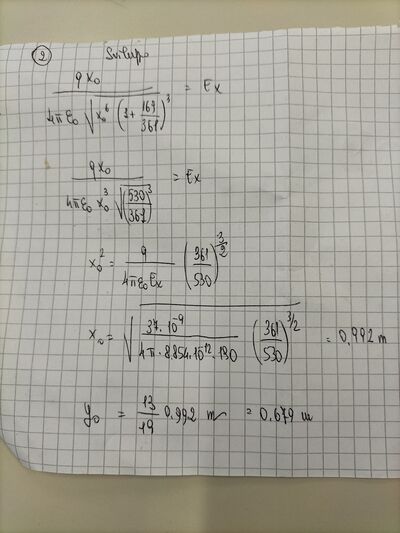 ② Sviluppo
q x₀ / (4πε₀ √(x₀⁶ (1 + 169/361)³)) = Ex
q x₀ / (4πε₀ x₀³ √((530/361)³)) = Ex
x₀² = q / (4πε₀Ex) (361/530)^(3/2)
x₀ = √(37·10⁻⁹ / (4π·8.854·10⁻¹²·190) (361/530)^(3/2)) = 0,992 m
y₀ = 13/19 0,992 m = 0.679 m